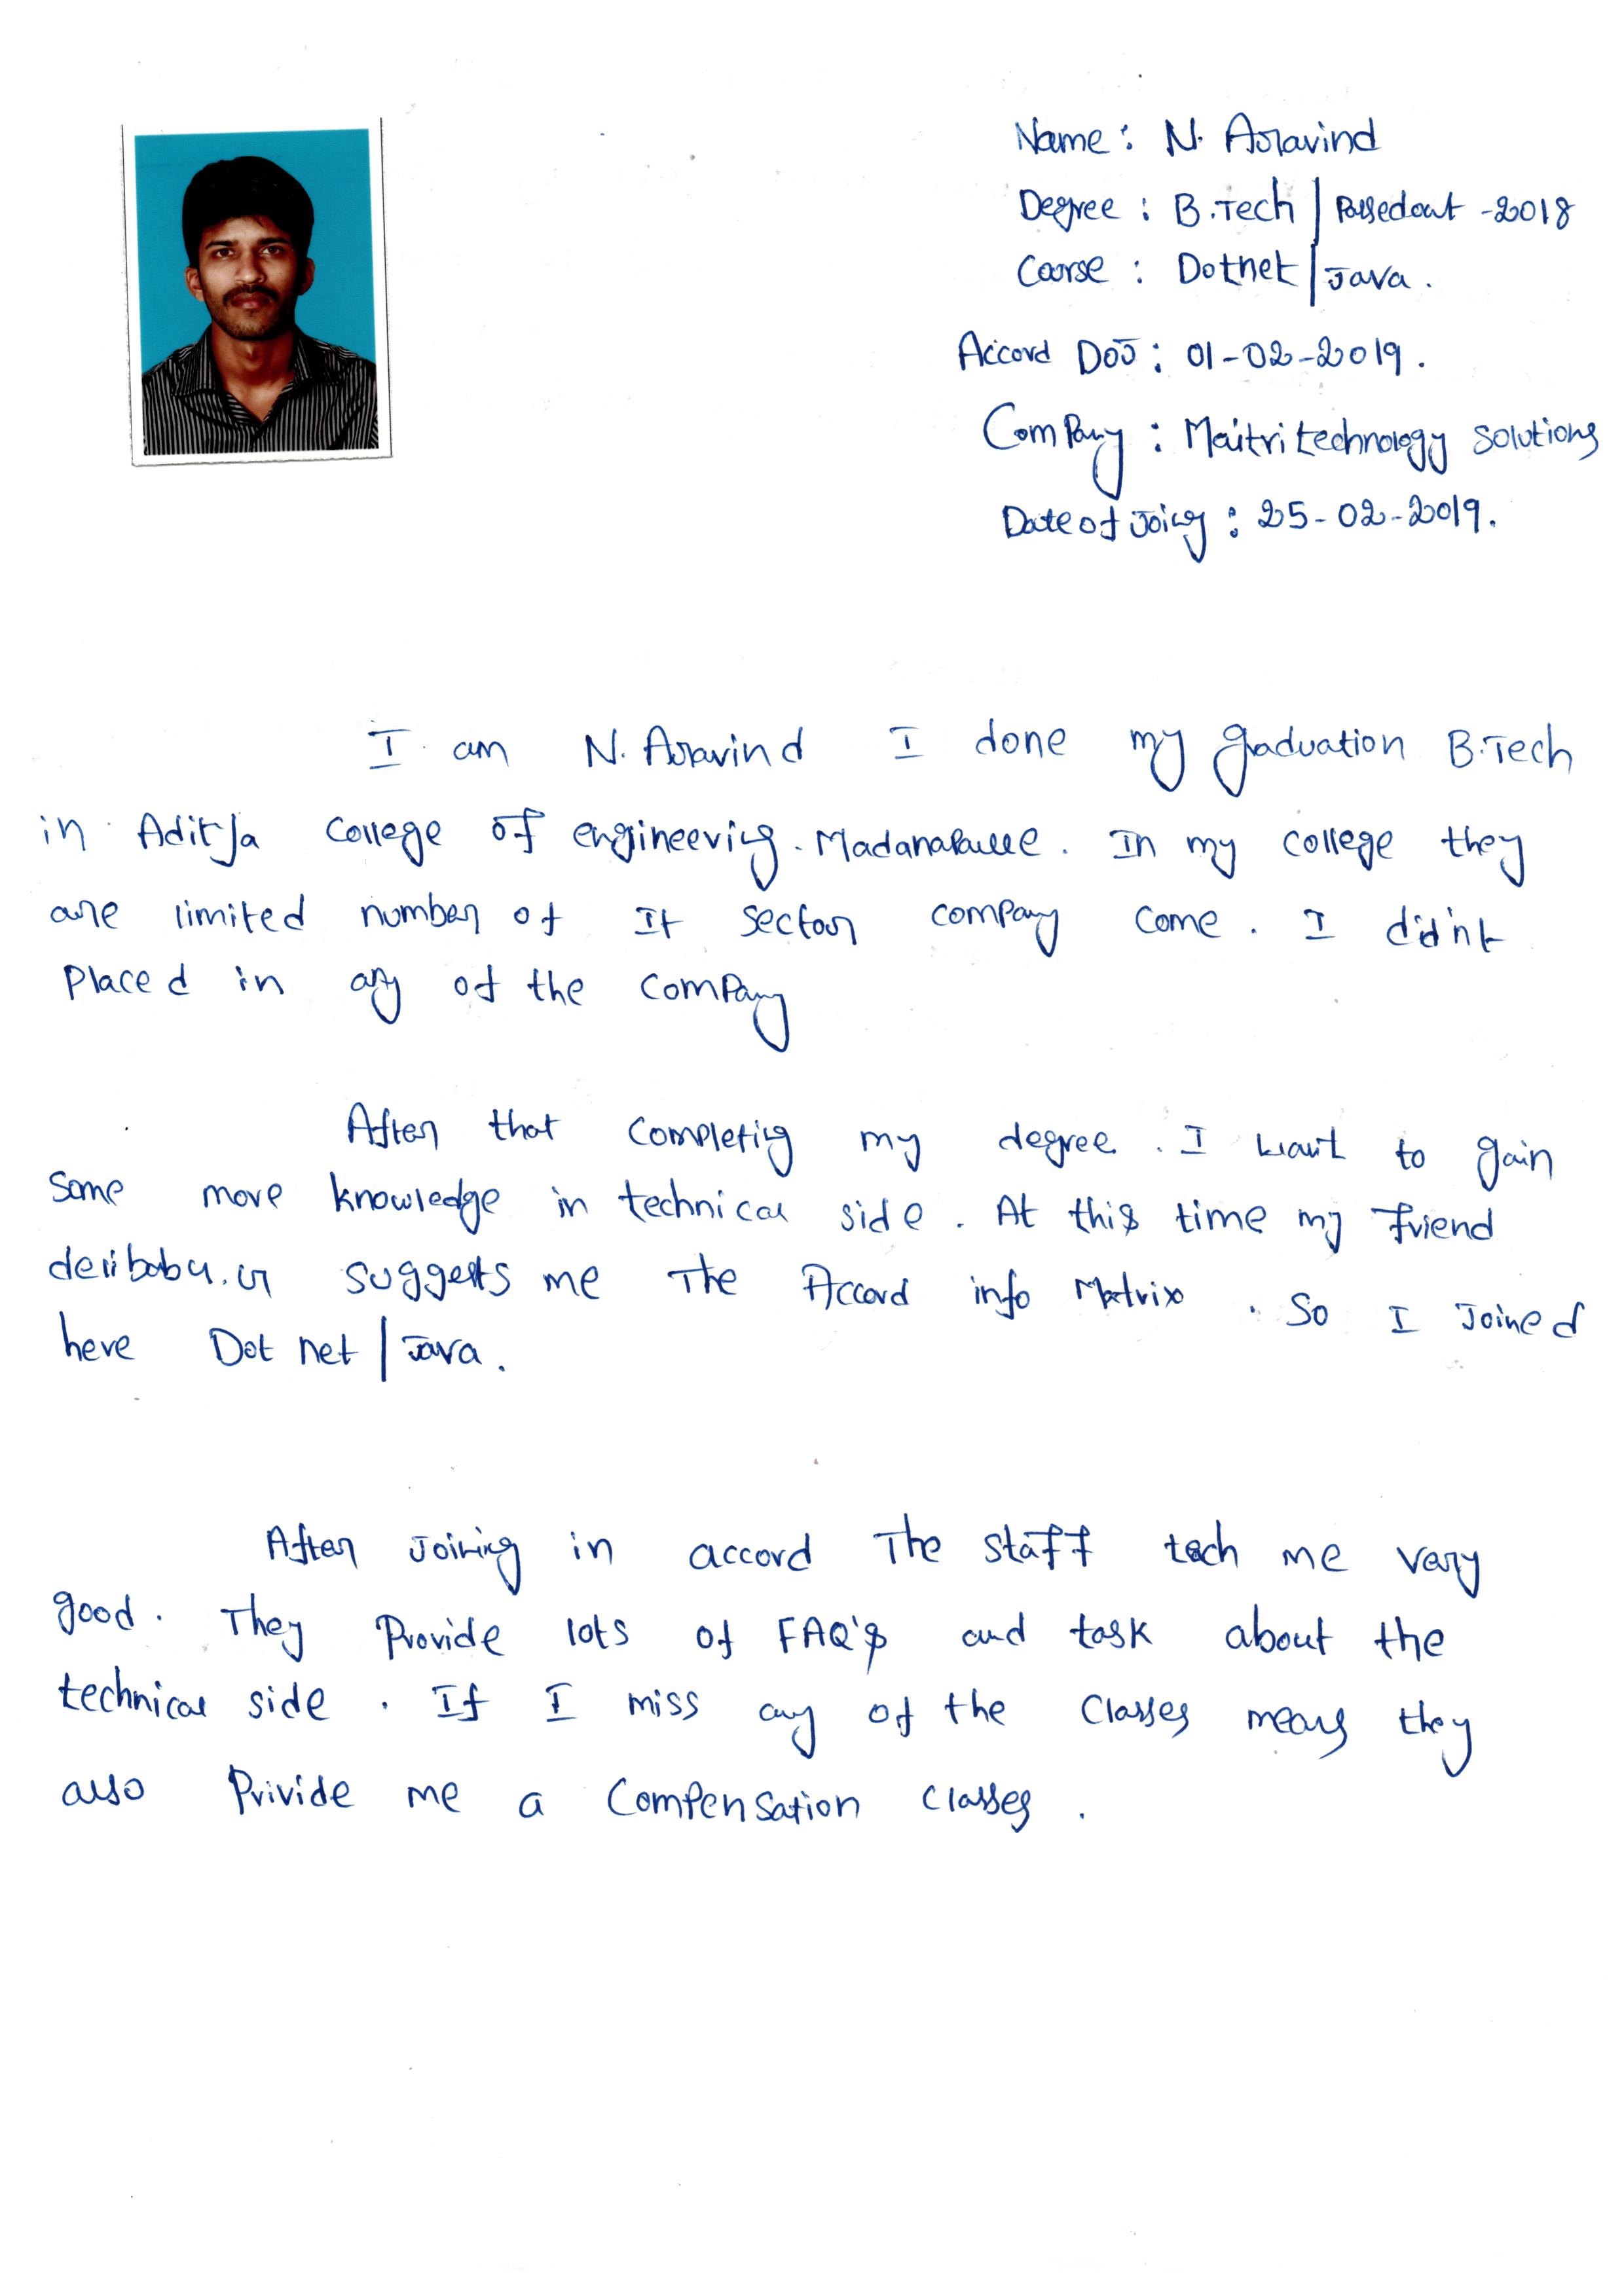 Name : N. Aravind
Degree : B.Tech | Passedout -2018
Course : Dotnet | Java.
Accord DOJ : 01-02-2019.
Company : Maitri technology solutions
Date of Joing : 25-02-2019.
I am N. Aravind I done my graduation B.Tech
in Aditya College of engineering. Madanapalle. In my college they
are limited number of It sector company come. I didn't
Placed in any of the company
After that completing my degree. I want to gain
some more knowledge in technical side. At this time my friend
suggests me The Accord info Matrix. So I Joined
here Dot net | Java.
After Joining in accord The staff tech me very
good. They Provide lots of FAQ's and task about the
technical side. If I miss any of the classes means they
also Privide me a Compensation classes.